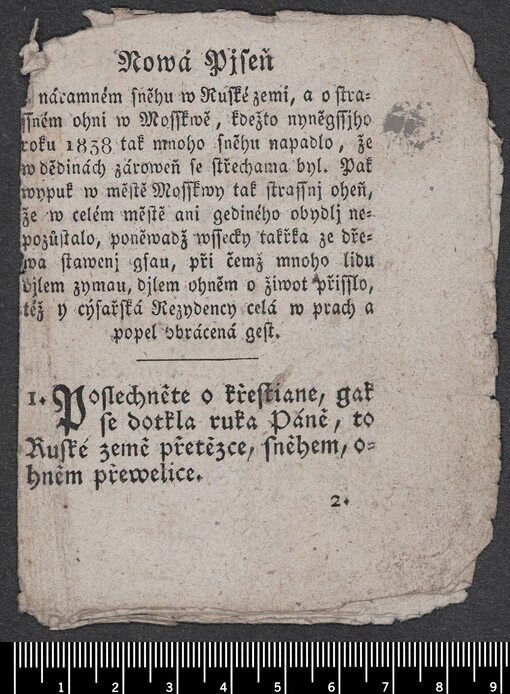 Nowá Pjseň
náramném sněhu w Ruské zemi, a o stra=
ssném ohni w Mosskwě, kdežto nyněgssjho
roku 1838 tak mnoho sněhu napadlo, že
w dědinách zároweň se střechama byl. Pak
wypuk w městě Mosskwy tak strassnj oheň,
že w celém městě ani gediného obydlj ne=
pozůstalo, poněwadž wssecky takřka ze dře=
wa stawenj gsau, při čemž mnoho lidu
djlem zymau, djlem ohněm o žiwot přisslo,
též y cýsařská Rezydency celá w prach a
popel obrácená gest.
1. Poslechněte o křestiane, gak
se dotkla ruka Páně, to
Ruské země přetězce, sněhem, o=
hněm přewelice.
2.
1 2 3 4 5 6 7 8 9